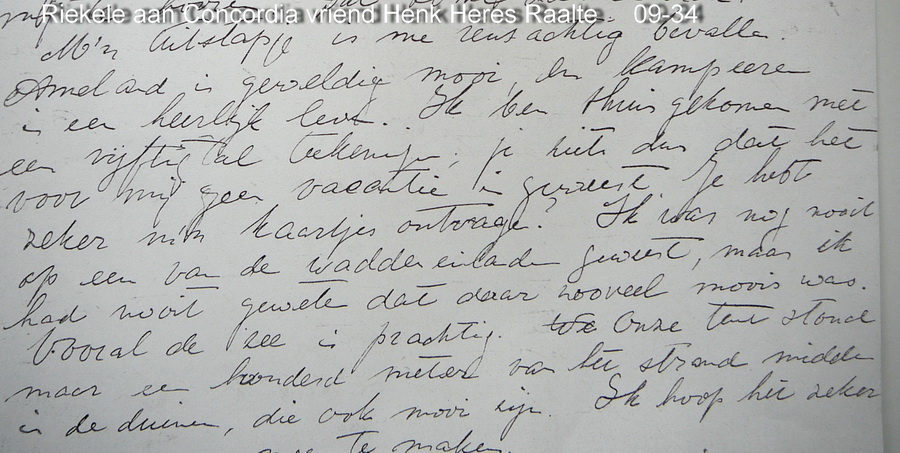 Riekele aan Concordia vriend Henk Heres Raalte 09-34
M'n uitstapje is me reusachtig bevalle.
Ameland is geweldig mooi, en kampeeren
is een heerlijk leve. Ik ben thuisgekomen met
een vijftigtal teekeninge, je ziets dus dat het
voor mij geen vacantie is geweest. Je hebt
zeker m'n kaartjes ontvange? Ik was nog nooit
op een van de waddeneilanden geweest, maar ik
had nooit gewete dat daar zooveel moois was.
Vooral de zee is prachtig. We Onze tent stond
maar een honderd meter van het strand midden
in de duinen, die ook mooi zijn. Ik hoop het zeker
te maken.